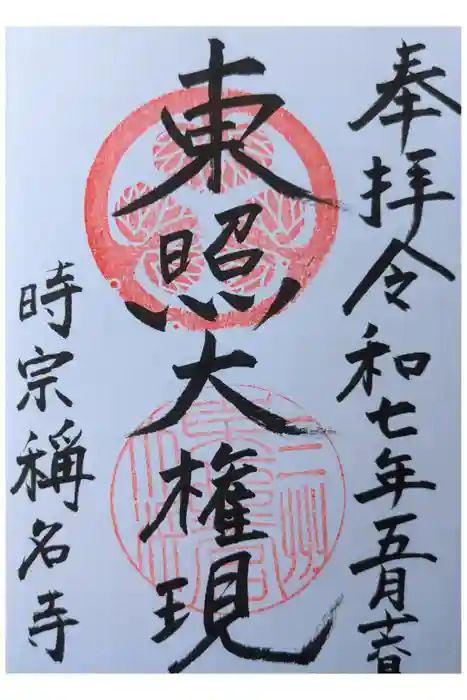 奉拝令和七年五月十八日
東照大権現
時宗稱名寺